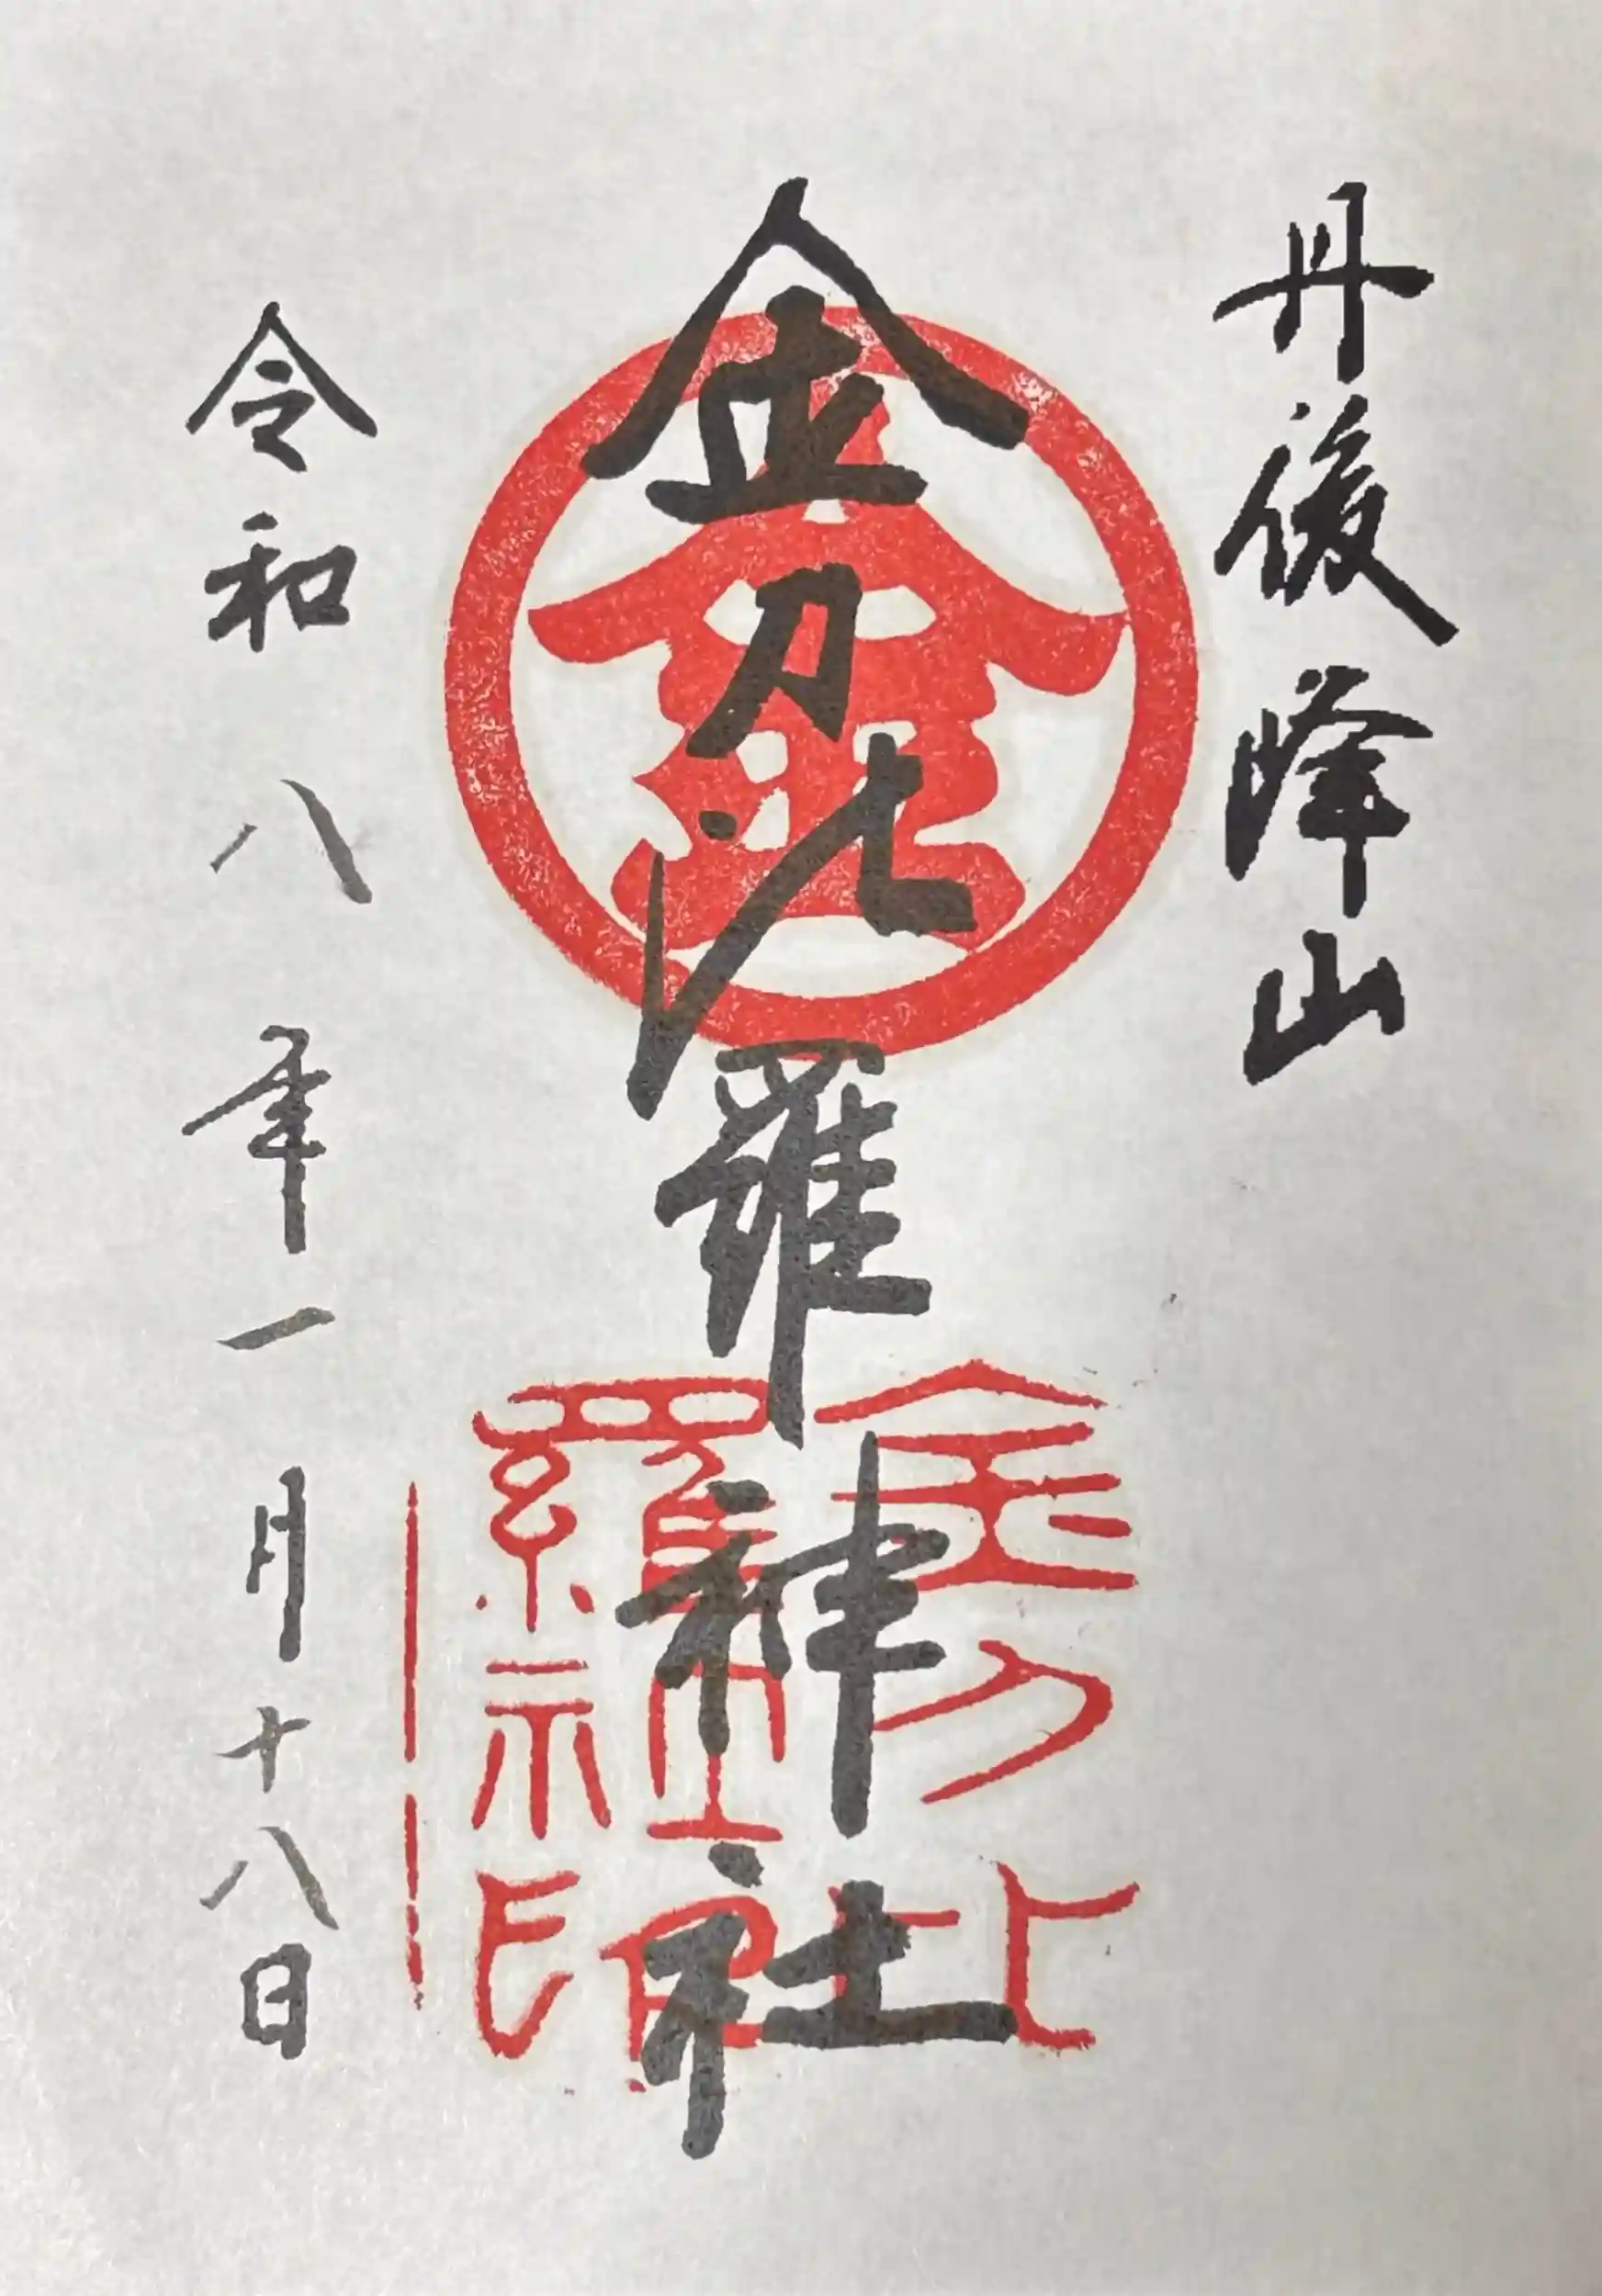 丹後峰山
金刀比羅神社
金
金刀比羅神社印
令和八年一月十八日